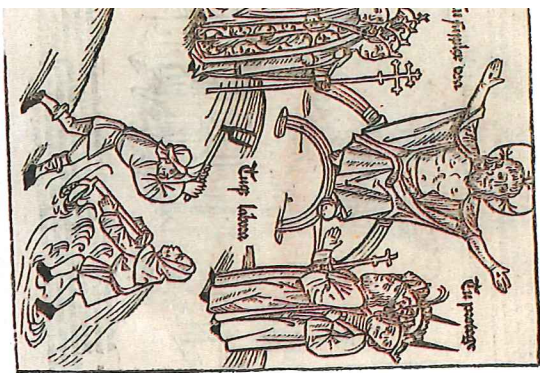 Tu supplex ora
Tu protege
Tuqꝫ labora